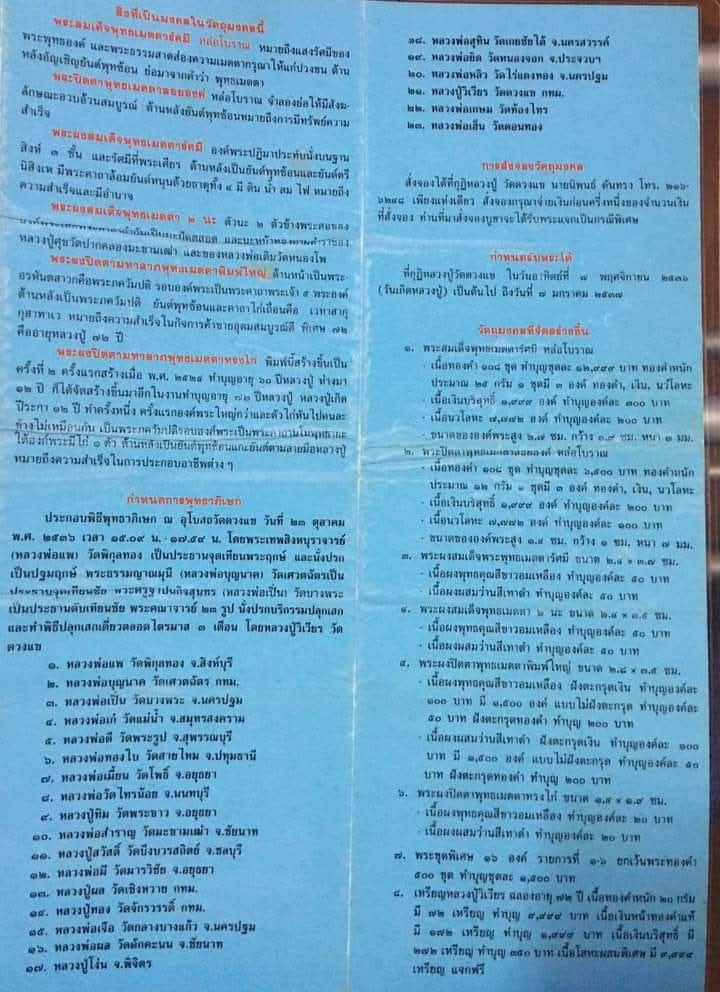 สิ่งที่เป็นมงคลในวัตถุมงคลนี้
พระสมเด็จพุทธเมตตารัศมี หล่อโบราณ หมายถึงแสงรัศมีของ
พระพุทธองค์ และพระธรรมสาดส่องความเมตตากรุณาให้แก่ปวงชน ด้าน
หลังอัญเชิญยันต์พุทซ้อน ย่อมาจากคำว่า พุทธเมตตา
พระปิดตาพุทธเมตตาลอยองค์ หล่อโบราณ จำลองย่อให้มีสังฆ-
ลักษณะอวบอ้วนสมบูรณ์ ด้านหลังยันต์พุทซ้อนหมายถึงการมีทรัพย์ความ
สำเร็จ
พระผงสมเด็จพุทธเมตตารัศมี องค์พระปฏิมาประทับนั่งบนฐาน
สิงห์ ๓ ชั้น และรัศมีที่พระเศียร ด้านหลังเป็นยันต์พุทซ้อนและยันต์ตรี
นิสิงเห มีพระคาถาล้อมยันต์หนุนด้วยธาตุทั้ง ๔ มี ดิน น้ำ ลม ไฟ หมายถึง
ความสำเร็จและมีอำนาจ
พระผงสมเด็จพุทธเมตตา ๒ นะ ตัวนะ ๒ ตัวข้างพระศอของ
และนะหน้าทองตามตำราของ
หลวงปู่ศุขวัดปากคลองมะขามเฒ่า และของหลวงพ่อเดิมวัดหนองโพ
พระผงปิดตามหาลาภพุทธเมตตาพิมพ์ใหญ่ ด้านหน้าเป็นพระ-
อรหันตสาวกคือพระภควัมปติ รอบองค์พระเป็นพระคาถาพระเจ้า ๕ พระองค์
ด้านหลังเป็นพระภควัมปติ ยันต์พุทซ้อนและคาถาไก่เถื่อนคือ เวทาสากุ
กุสาทาเว หมายถึงความสำเร็จในกิจการค้าขายอุดมสมบูรณ์ดี พิเศษ ๗๒
คืออายุหลวงปู่ ๗๒ ปี
พระผงปิดตามหาลาภพุทธเมตตาทรงไก่ พิมพ์นี้สร้างขึ้นเป็น
ครั้งที่ ๒ ครั้งแรกสร้างเมื่อ พ.ศ. ๒๕๒๔ ทำบุญอายุ ๖๐ ปีหลวงปู่ ห่างมา
๑๒ ปี ก็ได้จัดสร้างขึ้นมาอีกในงานทำบุญอายุ ๗๒ ปีหลวงปู่ หลวงปู่เกิด
ปีระกา ๑๒ ปี ทำครั้งหนึ่ง ครั้งแรกองค์พระใหญ่กว่าและตัวไก่หันไปคนละ
ข้างไม่เหมือนกัน เป็นพระภควัมปติรอบองค์พระเป็นพระคาถา
ใต้องค์พระมีไก่ ๑ ตัว ด้านหลังเป็นยันต์พุทซ้อนและยันต์ตามลายมือหลวงปู่
หมายถึงความสำเร็จในการประกอบอาชีพต่าง ๆ
กำหนดการพุทธาภิเษก
ประกอบพิธีพุทธาภิเษก ณ อุโบสถวัดดวงแข วันที่ ๒๓ ตุลาคม
พ.ศ. ๒๕๓๖ เวลา ๑๕.๐๙ น. - ๑๗.๕๙ น. โดยพระเทพสิงหบุราจารย์
(หลวงพ่อแพ) วัดพิกุลทอง เป็นประธานจุดเทียนพระฤกษ์ และนั่งปรก
เป็นปฐมฤกษ์ พระธรรมญาณมุนี (หลวงพ่อบุญนาค) วัดเศวตฉัตรเป็น
ประธานจุดเทียนชัย พระครูฐาปนกิจสุนทร (หลวงพ่อเปิ่น) วัดบางพระ
เป็นประธานดับเทียนชัย พระคณาจารย์ ๒๓ รูป นั่งปรกบริกรรมปลุกเสก
และทำพิธีปลุกเสกเดี่ยวตลอดไตรมาส ๓ เดือน โดยหลวงปู่วิเวียร วัด
ดวงแข
๑. หลวงพ่อแพ วัดพิกุลทอง จ.สิงห์บุรี
๒. หลวงพ่อบุญนาค วัดเศวตฉัตร กทม.
๓. หลวงพ่อเปิ่น วัดบางพระ จ.นครปฐม
๔. หลวงพ่อเก๋ วัดแม่น้ำ จ.สมุทรสงคราม
๕. หลวงพ่อดี วัดพระรูป จ.สุพรรณบุรี
๖. หลวงพ่อทองใบ วัดสายไหม จ.ปทุมธานี
๗. หลวงพ่อเมี้ยน วัดโพธิ์ จ.อยุธยา
๘. หลวงพ่อวัดไทรน้อย จ.นนทบุรี
๙. หลวงปู่ทิม วัดพระขาว จ.อยุธยา
๑๐. หลวงพ่อสำราญ วัดมะขามเฒ่า จ.ชัยนาท
๑๑. หลวงปู่สวัสดิ์ วัดบึงบวรสถิตย์ จ.ชลบุรี
๑๒. หลวงพ่อมี วัดมารวิชัย จ.อยุธยา
๑๓. หลวงปู่ผล วัดเชิงหวาย กทม.
๑๔. หลวงปู่ทอง วัดจักรวรรดิ์ กทม.
๑๕. หลวงพ่อเจือ วัดกลางบางแก้ว จ.นครปฐม
๑๖. หลวงพ่อผล วัดดักคะนน จ.ชัยนาท
๑๗. หลวงปู่โง่น จ.พิจิตร
๑๘. หลวงพ่อสุทิน วัดเถยชัยใต้ จ.นครสวรรค์
๑๙. หลวงพ่อยิด วัดหนองจอก จ.ประจวบฯ
๒๐. หลวงพ่อหลิว วัดไร่แตงทอง จ.นครปฐม
๒๑. หลวงปู่วิเวียร วัดดวงแข กทม.
๒๒. หลวงพ่อเกษม วัดท้องไทร
๒๓. หลวงพ่อเอ็น วัดดอนทอง
การสั่งจองวัตถุมงคล
สั่งจองได้ที่กุฏิหลวงปู่ วัดดวงแข นายนิพนธ์ ดันทรง โทร. ๒๑๖-
๖๒๘๘ เพียงแห่งเดียว สั่งจองกรุณาจ่ายเงินก่อนครึ่งหนึ่งของจำนวนเงิน
ที่สั่งจอง ท่านที่มาสั่งจองบูชาจะได้รับพระแจกเป็นกรณีพิเศษ
กำหนดรับพระได้
ที่กุฏิหลวงปู่วัดดวงแข ในวันอาทิตย์ที่ ๗ พฤศจิกายน ๒๕๓๖
(วันเกิดหลวงปู่) เป็นต้นไป ถึงวันที่ ๗ มกราคม ๒๕๓๗
วัตถุมงคลที่จัดสร้างขึ้น
๑. พระสมเด็จพุทธเมตตารัศมี หล่อโบราณ
- เนื้อทองคำ ๑๐๘ ชุด ทำบุญชุดละ ๑๒,๙๙๙ บาท ทองคำหนัก
ประมาณ ๒๕ กรัม ๑ ชุดมี ๓ องค์ ทองคำ, เงิน, นวโลหะ
- เนื้อเงินบริสุทธิ์ ๑,๙๙๙ องค์ ทำบุญองค์ละ ๓๐๐ บาท
- เนื้อนวโลหะ ๗,๗๗๒ องค์ ทำบุญองค์ละ ๒๐๐ บาท
- ขนาดขององค์พระสูง ๖.๗ ซม. กว้าง ๓.๙ ซม. หนา ๓ มม.
๒. พระปิดตาพุทธเมตตาลอยองค์ หล่อโบราณ
- เนื้อทองคำ ๑๐๘ ชุด ทำบุญชุดละ ๖,๕๐๐ บาท ทองคำหนัก
ประมาณ ๑๒ กรัม ๑ ชุดมี ๓ องค์ ทองคำ, เงิน, นวโลหะ
- เนื้อเงินบริสุทธิ์ ๑,๙๙๙ องค์ ทำบุญองค์ละ ๒๐๐ บาท
- เนื้อนวโลหะ ๗,๗๗๒ องค์ ทำบุญองค์ละ ๑๐๐ บาท
- ขนาดขององค์พระสูง ๑.๔ ซม. กว้าง ๑ ซม. หนา ๗ มม.
๓. พระผงสมเด็จพระพุทธเมตตารัศมี ขนาด ๒.๔ × ๓.๗ ซม.
- เนื้อผงพุทธคุณสีขาวอมเหลือง ทำบุญองค์ละ ๕๐ บาท
- เนื้อผงผสมว่านสีเทาดำ ทำบุญองค์ละ ๕๐ บาท
๔. พระผงสมเด็จพุทธเมตตา ๒ นะ ขนาด ๒.๔ × ๓.๕ ซม.
- เนื้อผงพุทธคุณสีขาวอมเหลือง ทำบุญองค์ละ ๕๐ บาท
- เนื้อผงผสมว่านสีเทาดำ ทำบุญองค์ละ ๕๐ บาท
๕. พระผงปิดตาพุทธเมตตาพิมพ์ใหญ่ ขนาด ๒.๘ × ๓.๕ ซม.
- เนื้อผงพุทธคุณสีขาวอมเหลือง ฝังตะกรุดเงิน ทำบุญองค์ละ
๑๐๐ บาท มี ๑,๕๐๐ องค์ แบบไม่ฝังตะกรุด ทำบุญองค์ละ
๕๐ บาท ฝังตะกรุดทองคำ ทำบุญ ๒๐๐ บาท
- เนื้อผงผสมว่านสีเทาดำ ฝังตะกรุดเงิน ทำบุญองค์ละ ๑๐๐
บาท มี ๑,๕๐๐ องค์ แบบไม่ฝังตะกรุด ทำบุญองค์ละ ๕๐
บาท ฝังตะกรุดทองคำ ทำบุญ ๒๐๐ บาท
๖. พระผงปิดตาพุทธเมตตาทรงไก่ ขนาด ๑.๙ × ๑.๙ ซม.
- เนื้อผงพุทธคุณสีขาวอมเหลือง ทำบุญองค์ละ ๒๐ บาท
- เนื้อผงผสมว่านสีเทาดำ ทำบุญองค์ละ ๒๐ บาท
๗. พระชุดพิเศษ ๑๖ องค์ รายการที่ ๑-๖ ยกเว้นพระทองคำ
๕๐๐ ชุด ทำบุญชุดละ ๑,๕๐๐ บาท
๘. เหรียญหลวงปู่วิเวียร ฉลองอายุ ๗๒ ปี เนื้อทองคำหนัก ๒๐ กรัม
มี ๗๒ เหรียญ ทำบุญ ๙,๙๙๙ บาท เนื้อเงินหน้าทองคำแท้
มี ๑๗๒ เหรียญ ทำบุญ ๑,๙๙๙ บาท เนื้อเงินบริสุทธิ์ มี
๒๗๒ เหรียญ ทำบุญ ๓๕๐ บาท เนื้อโลหะผสมพิเศษ มี ๙,๙๙๙
เหรียญ แจกฟรี